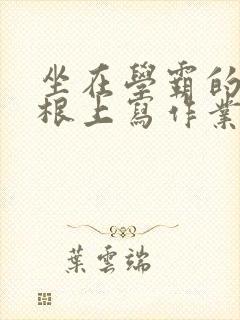 坐在學霸的
根上寫作業
葉雲端